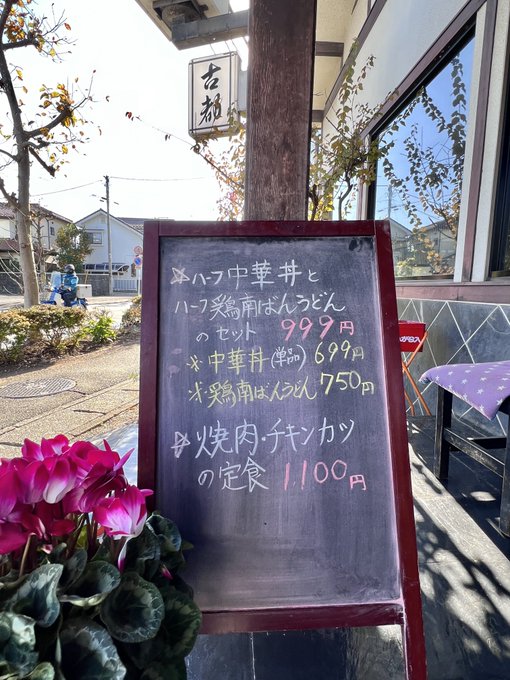 古都
☆ハーフ中華丼と
ハーフ鶏南ばんうどん
のセット 999円
※中華丼(単品)699円
※鶏南ばんうどん750円
☆焼肉・チキンカツ
の定食 1100円